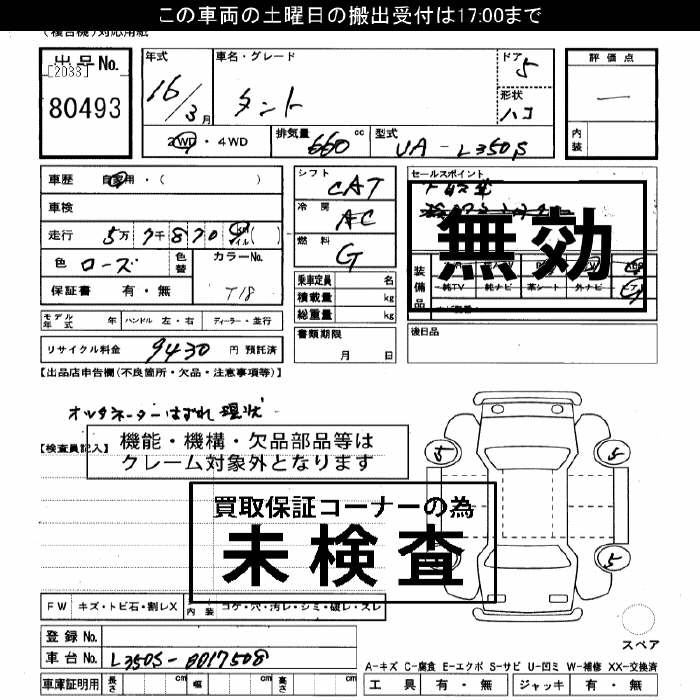 この車両の土曜日の搬出受付は17:00まで
(複合機)対応用紙
出品No.
[2033]
80493
年式
16/3月
車名・グレード
タント
ドア
5
形状
ハコ
評価点
—
内装
2WD・4WD
排気量
660cc
型式
UA-L350S
車歴 自家用・( )
車検
走行 5万7千870
色 ローズ
色替
カラーNo.
T18
保証書 有・無
シフト
CAT
冷房
AC
燃料
G
乗車定員 名
積載量 kg
総重量 kg
セールスポイント
無効
装備品
純TV
純ナビ
革シート
外ナビ
モデル年式 年
ハンドル 左・右
ディーラー・並行
リサイクル料金 9430 円 預託済
書類期限
月 日
後日品
【出品店申告欄(不良箇所・欠品・注意事項等)】
オルタネーターはずれ 現状
【検査員記入】
機能・機構・欠品部品等は
クレーム対象外となります
買取保証コーナーの為
未検査
5
5
5
FW キズ・トビ石・割レX
内装 コゲ・穴・汚レ・シミ・破レ・スレ
スペア
登録No.
車台No. L350S-0017508
車庫証明用 長さ cm 幅 cm 高さ cm
A-キズ C-腐食 E-エクボ S-サビ U-凹ミ W-補修 XX-交換済
工具 有・無 ジャッキ 有・無